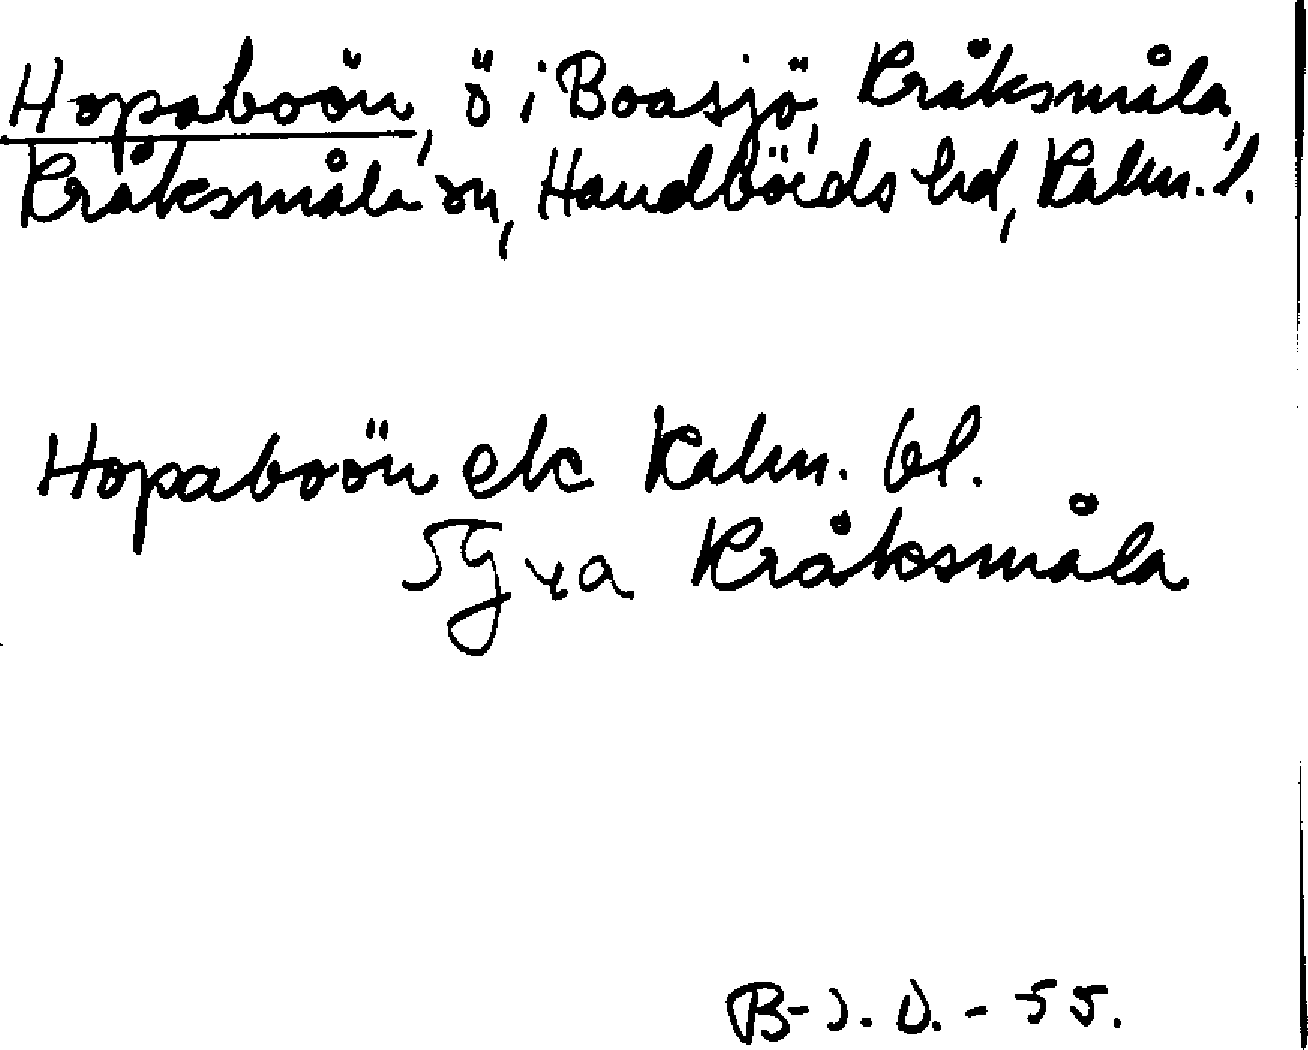 Hopaboön, ö i Boasjö, Kråksmåla,
Kråksmåla sn, Handbörds hd, Kalm. l.
Hopaboön ek Kalm. bl.
5G Kråksmåla
B-J. D. - 55.